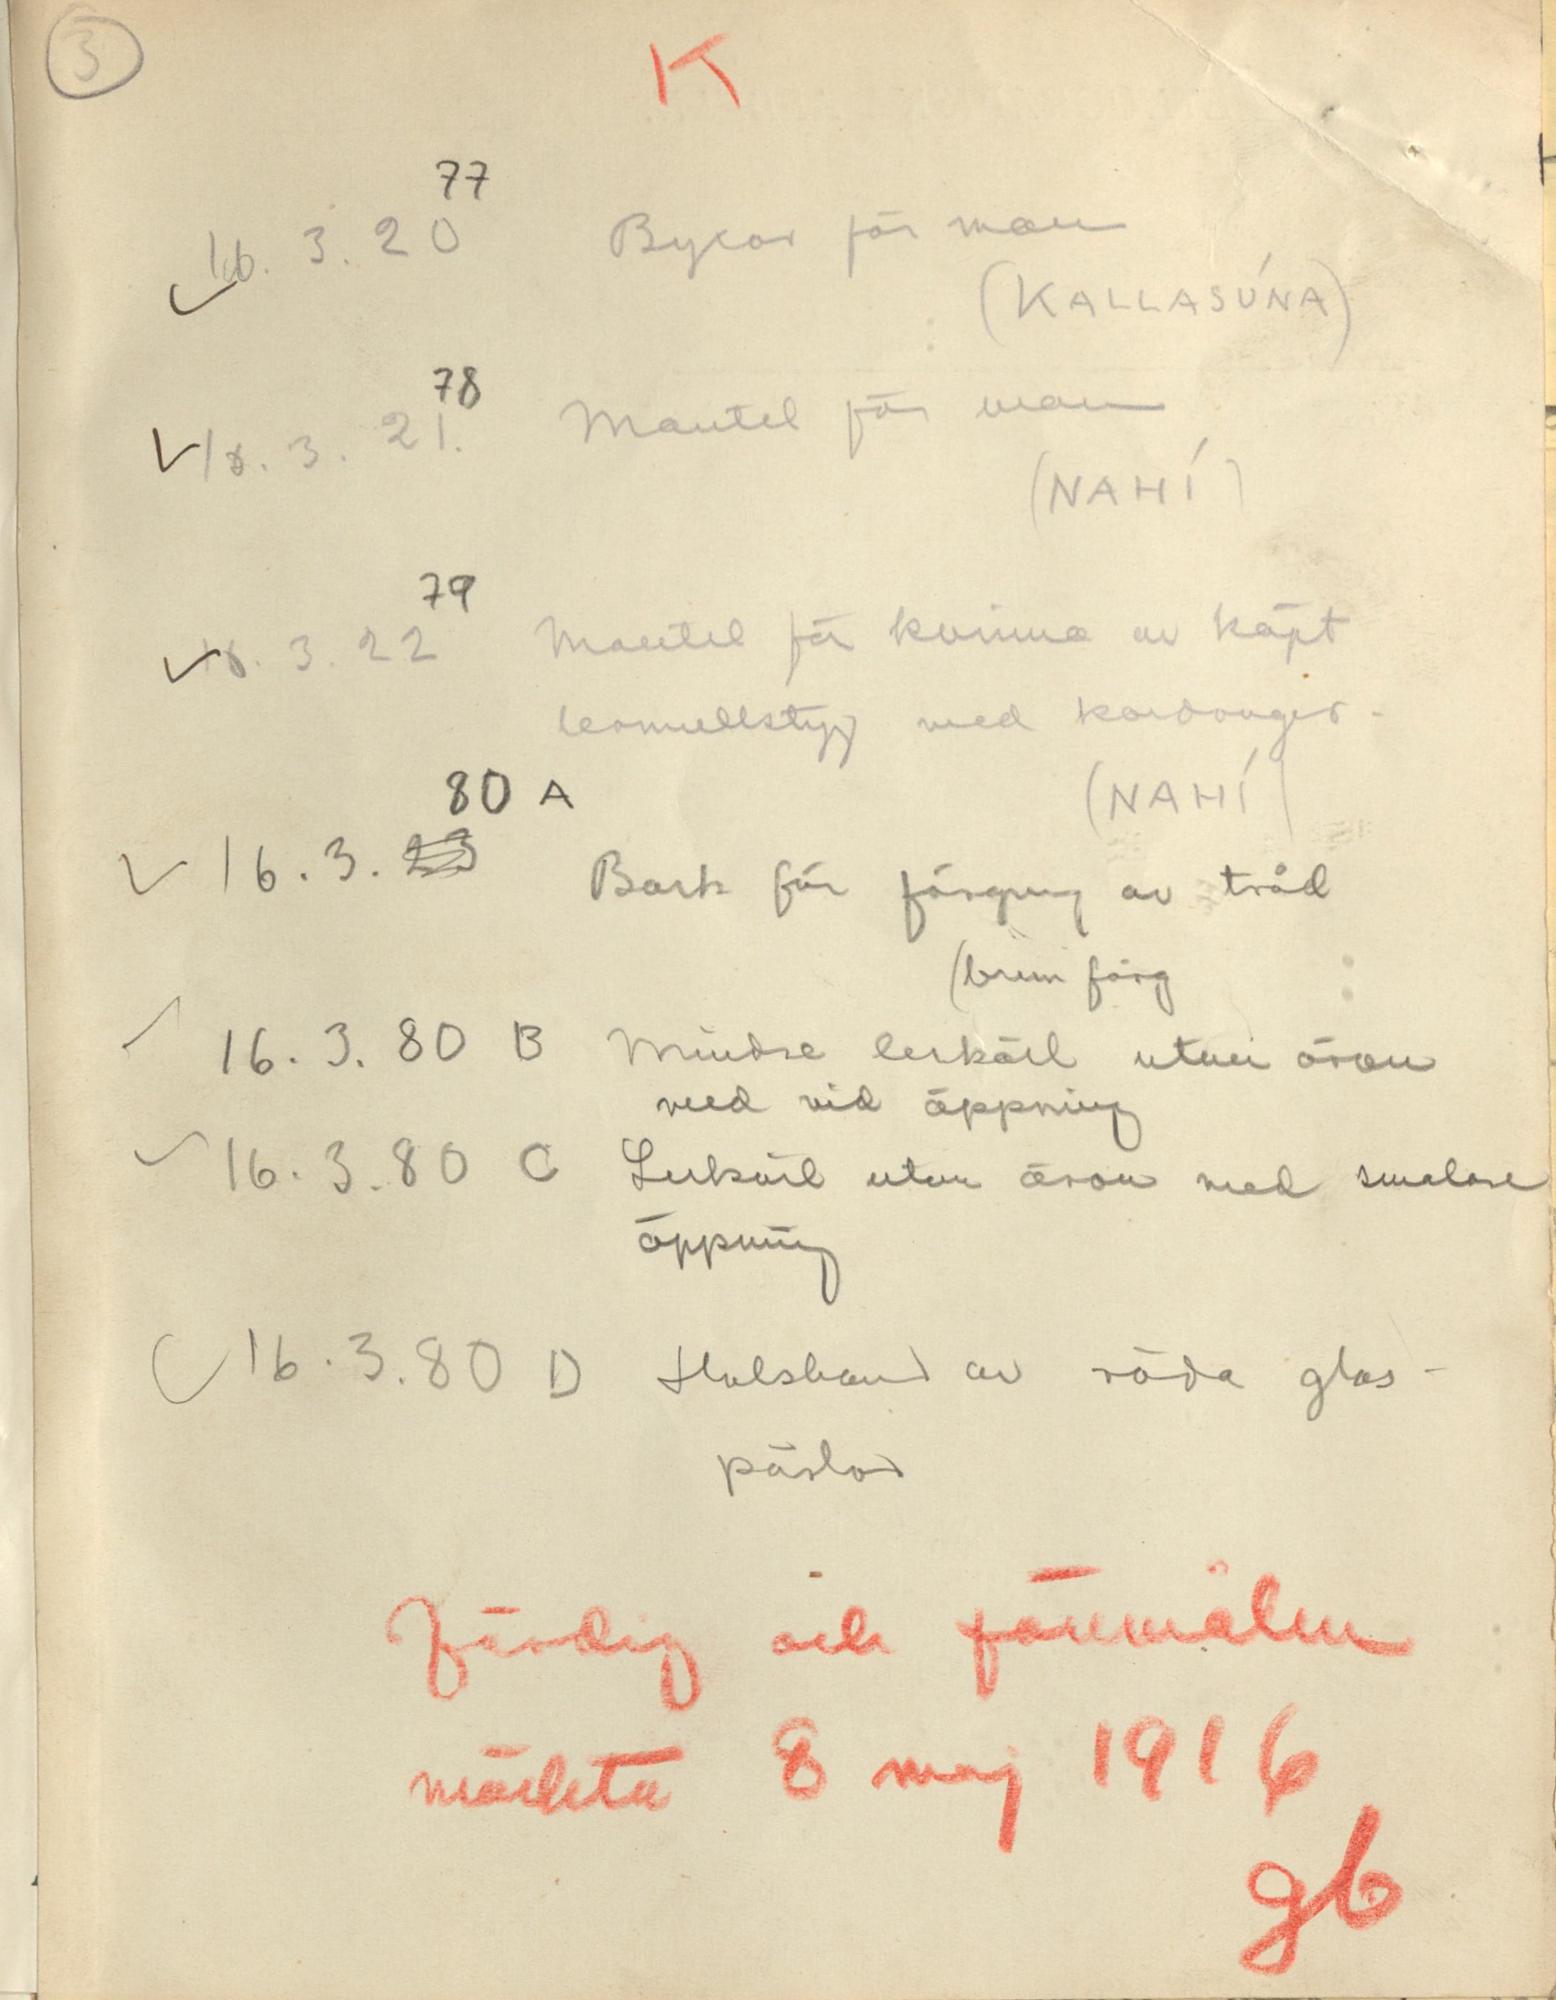 3
K
77
16. 3. 20 Byxor för man
(KALLASÚNA)
78
16. 3. 21. Mantel för man
(NAHÍ)
79
16. 3. 22 Mantel för kvinna av köpt
bomullstyg med kordonger.
(NAHÍ)
80 A
16. 3. 23 Bark för färgning av tråd
(brun färg
16. 3. 80 B Mindre lerkärl utan öron
med vid öppning
16. 3. 80 C Lerkärl utan öron med smalare
öppning
16. 3. 80 D Halsband av röda glas-
pärlor
Färdig och föremålen
märkta 8 maj 1916
gb